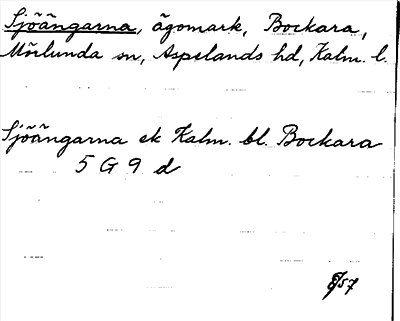 Sjöängarna, ägomark, Bockara,
Mörlunda sn, Aspelands hd, Kalm. l.
Sjöängarna ek Kalm. bl. Bockara
5 G 9 d